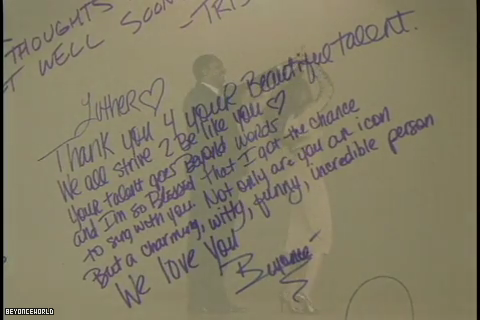 THOUGHTS
T WELL SOON
-TRIS
Luther♡
Thank you 4 your Beautiful talent.
We all strive 2 Be like you ♡
your talent goes Beyond words
and I'm so Blessed that I got the chance
to sing with you. Not only are you an icon
But a charming, witty, funny, incredible person
We love you
Beyoncé
BEYONCEWORLD